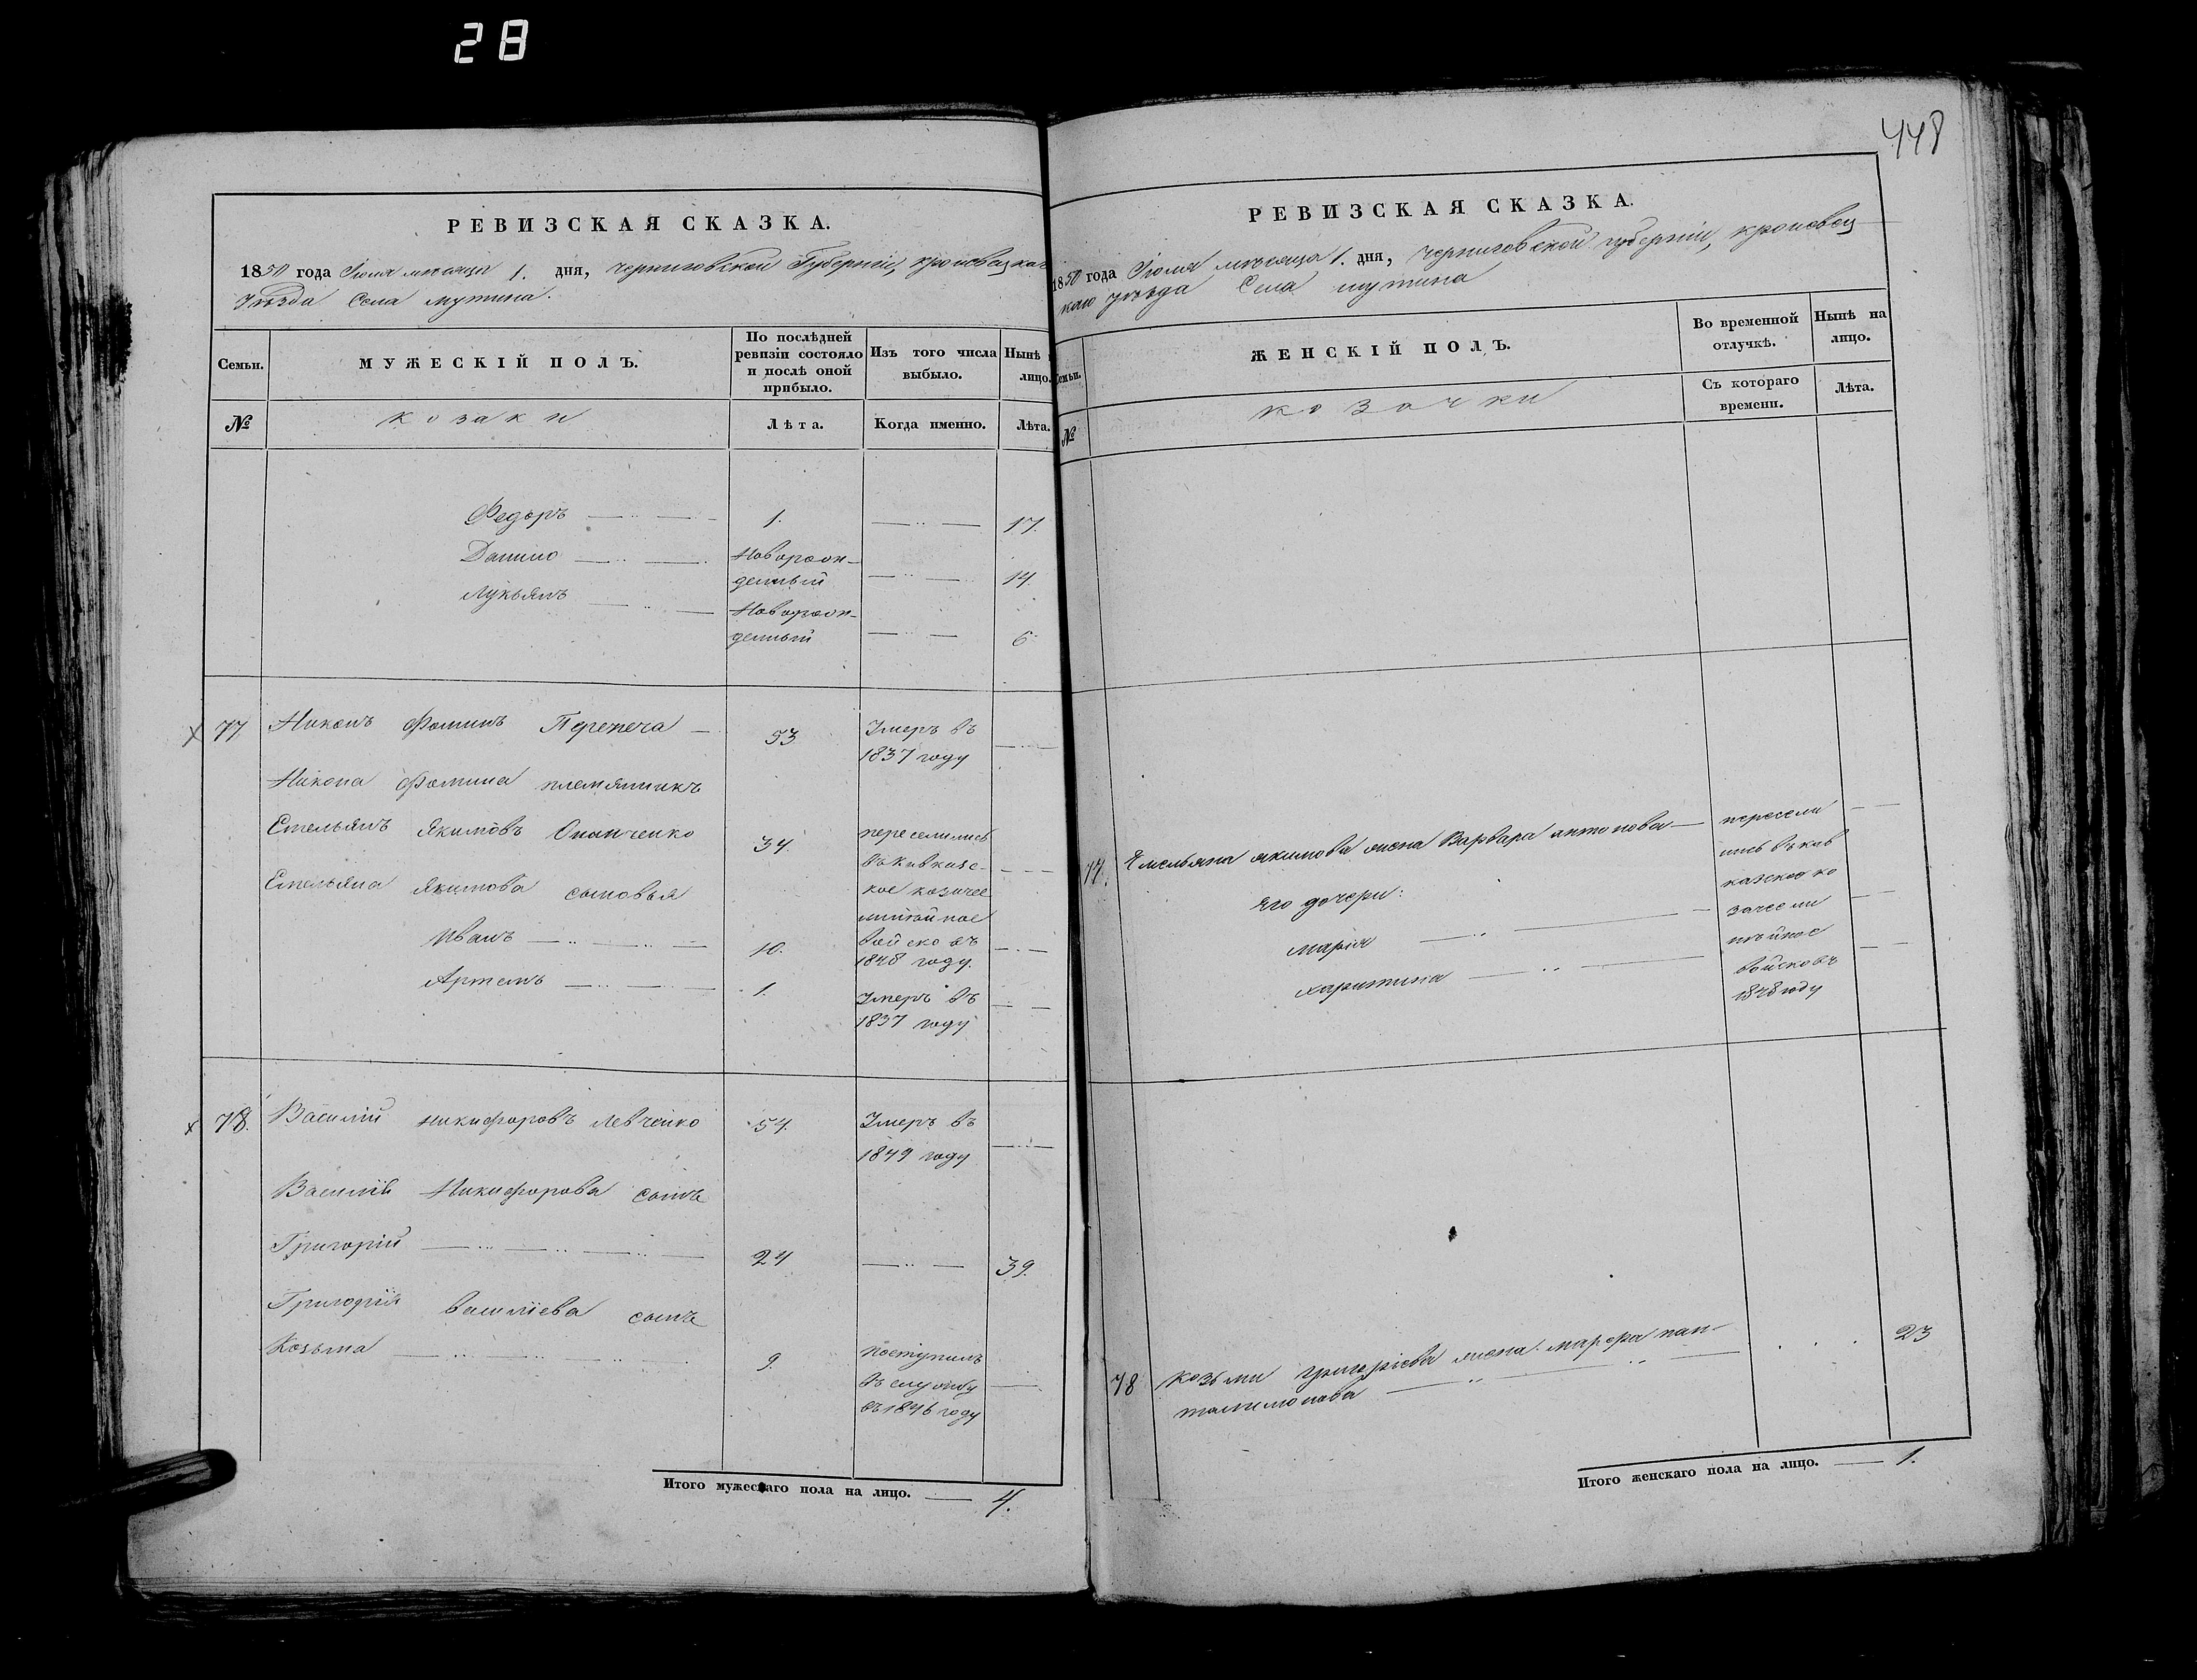 28
448
РЕВИЗСКАЯ СКАЗКА.
1850 года Июля месяца 1. дня, черниговской Губерніи, кролевецкаго
Уѣзда Села мутина.
Семьи.
МУЖЕСКІЙ ПОЛЪ.
По послѣдней
ревизіи состояло
и послѣ оной
прибыло.
Изъ того числа
выбыло.
Нынѣ
лицо.
№
козаки
Лѣта.
Когда именно.
Лѣта.
Федоръ 1. 17.
Данило Новорож-
денный 14.
Лукьянъ Новорож-
денный 6.
77 Никонъ Фоминъ Перепеча 53 Умеръ въ
1837 году
Никона Фомина племянникъ
Емельянъ Якимовъ Онипченко 34. переселились
въ кавказс-
Емельяна Якимова сыновья
кое козачее
линейное
Иванъ 10. войско въ
1848 году.
Артемъ 1. Умеръ въ
1837 году
78. Василій никифоровъ Левченко 54. Умеръ въ
1849 году
Василія Никифорова сынъ
Григорій 24 39.
Григорія василіева сынъ
Козьма 9. поступилъ
въ службу
въ 1846 году
Итого мужескаго пола на лицо. 4.
РЕВИЗСКАЯ СКАЗКА.
1850 года Июля мѣсяца 1. дня, Черниговской губерніи, кролевец
каго уѣзда Села мутина
Семьи.
ЖЕНСКІЙ ПОЛЪ.
Во временной
отлучкѣ.
Нынѣ на
лицо.
№
козачки
Съ котораго
времени.
Лѣта.
77. Емельяна якимова жена Варвара антонова пересели
лись въ кав
казское ко
Его дочери: зачее ли
марія нѣйное
харитина войско въ
1848 году
78 козьми григоріева жена марфа пан-
талимонова 23
Итого женскаго пола на лицо. 1.